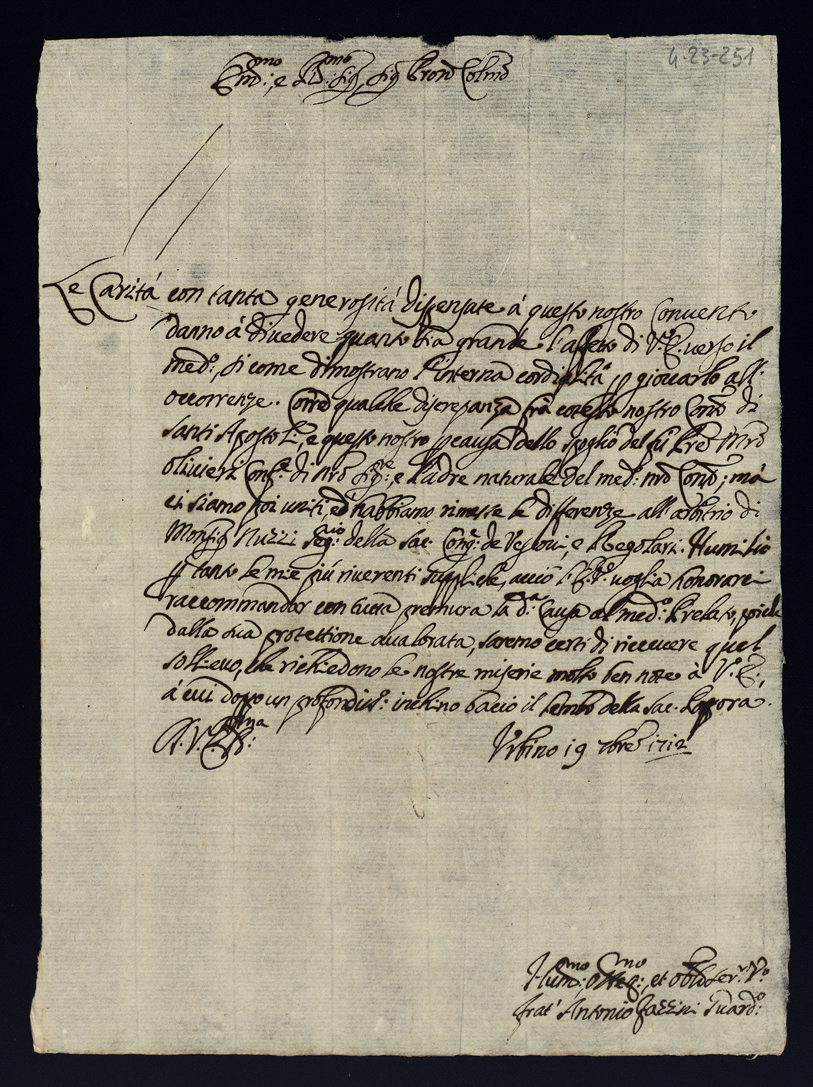 4-23-251
Em.mo: e R.mo: Sig.r Sig.r Pron Colmo
Le Carità con tanta generosità dispensate à questo nostro Convento
danno à divedere quanto sia grande l'affetto di V. E. verso il
med.o, si come dimostrano l'interna cordialità p giovarlo all'
occorrenze. Corre qualche discrepanza frà cotesto nostro Conto di
Santi Apostoli, e questo nostro p causa dello spoglio del fù Pre Mro
Olivieri Conf.e di Nro Sig.re, e Padre naturale del med.o nro Conto; mà
ci siamo poi uniti, ed habbiamo rimesse le differenze all'arbitrio di
Monsig Nuzzi Seg.rio della Sac. Cong.e de Vescovi, e Regolari. Humilio
p tanto le mie più riverenti suppliche, acciò l'E. V. voglia honorarci
raccommandar con tutta premura la d.a Causa al med.o Prelato, poiche
dalla sua protettione avalorata, saremo certi di ricevere quel
sollievo, che richiedono le nostre miserie molto ben note à V. E.,
à cui dopo un profondis.o inchino bacio il lembo della Sac. Porpora.
D. V. E. R.ma
Urbino 19 7bre 1712
Hum.mo, Dev.mo, et obb Ser.r V.o
frat' Antonio Fazzini Guard.o